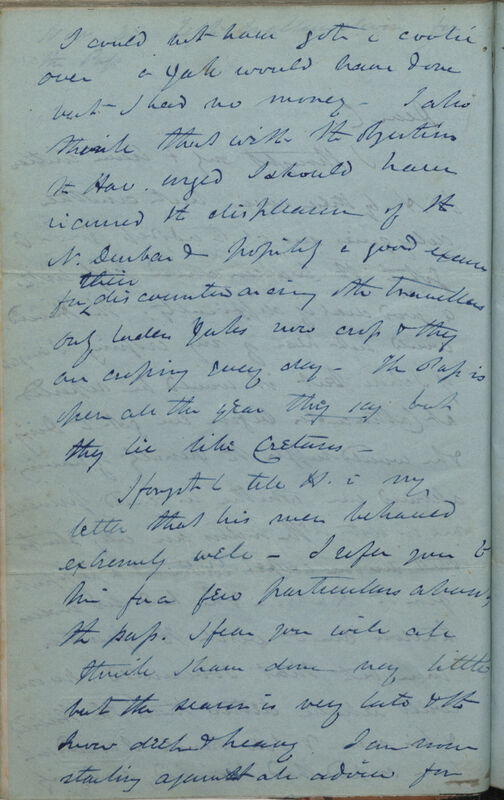 I could not have got a coolie
over a Yak would have done
but I had no money – I also
think that with the objections
the Hav. urged I should have
incurred the displeasure of the
N. Durbar & possibly a good excuse
for their discountenancing other travellers
only laden Yaks now cross & they
are crossing every day – The Pass is
open all the year they say but
they lie like Cretans –
I forgot to tell H. in my
letter that his men behaved
extremely well – I refer you to
him for a few particulars about
the pass. I fear you will all
think I have done very little
but the season is very late & the
snow deep & heavy. I am now
starting against all advice for